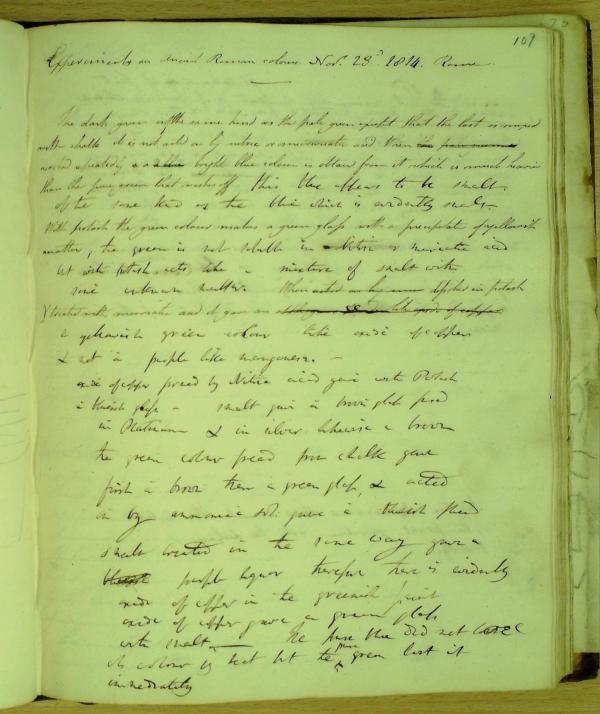 109
Experiments on ancient Roman colours Nov. 23d 1814. Rome
The dark green is the same kind as the pale green except that the last is mixed
with chalk it is not acted on by nitric or muriatic acid and when
washed repeatedly a bright blue colour is obtained from it which is much heavier
than the pure green that washes off This blue appears to be smalt
of the same kind as the blue which is evidently smalt
With potash the green colour makes a green glass with a precipitate of yellowish
matter, the green is not soluble in Nitric or muriatic acid
but with potash acts like a mixture of smalt with
some unknown matter. When acted on by potash
& treated with muriatic acid it gave
a yellowish green colour like oxide of copper
& not a purple like manganese. –
oxide of copper preced by Nitric acid gave with Potash
a blueish glass – smalt gave a brown glass fused
in Platinum & in silver likewise a brown
the green colour freed from chalk gave
first a brown then a green glass, & acted
on by ammoniac sol: gave a blueish fluid
smalt treated in the same way gave a
purple liquor therefore there is evidently
oxide of copper in the greenish paint
oxide of copper gave a green glass
with smalt. — The pure blue did not lose
its colour by heat but the pure green lost it
immediately